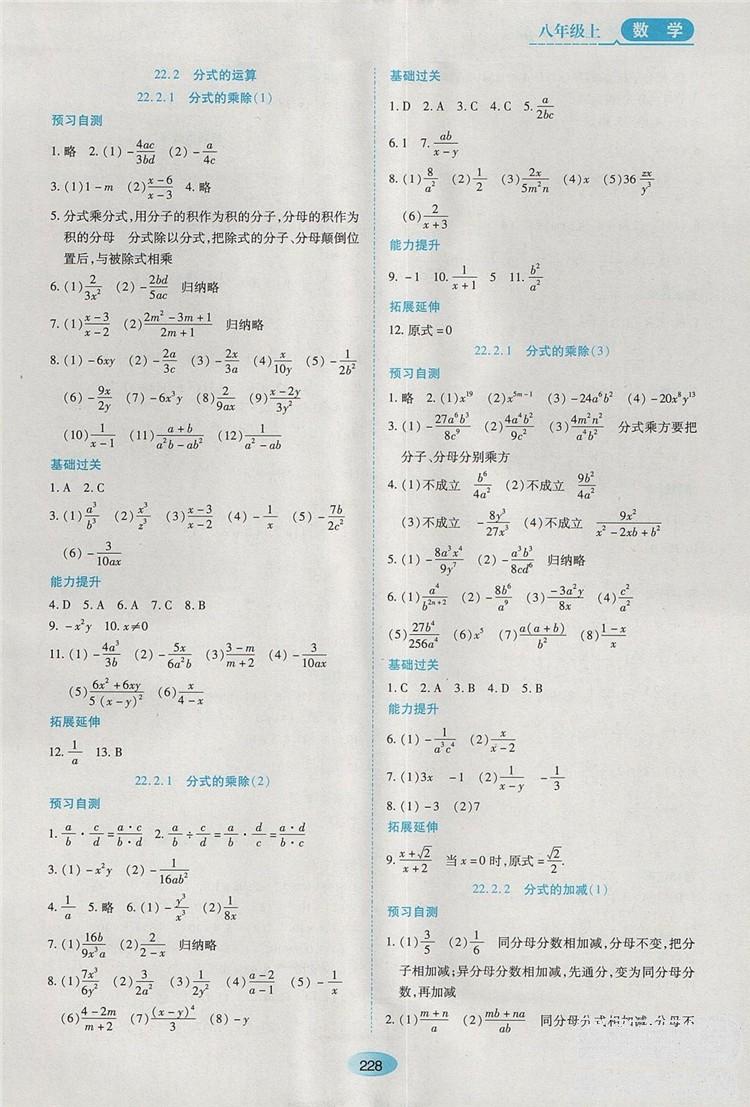 八年级上 数 学
22.2 分式的运算
22.2.1 分式的乘除(1)
预习自测
1. 略 2. (1) -4ac/3bd (2) -a/4c
3. (1)1-m (2)(x-6)/(x-3) 4. 略
5. 分式乘分式,用分子的积作为积的分子,分母的积作为
积的分母 分式除以分式,把除式的分子、分母颠倒位
置后,与被除式相乘
6. (1)2/3x² (2) -2bd/5ac 归纳略
7. (1)(x-3)/(x-2) (2)(2m²-3m+1)/(2m+1) 归纳略
8. (1) -6xy (2) -2a/3c (3) -2x/3a (4)x/10y (5) -1/2b²
(6) -9x/2y (7) -6x³y (8)2/9ax (9)(x-2y)/3y²
(10)1/(x-1) (11)(a+b)/(a²b-ab²) (12)1/(a²-ab)
基础过关
1. A 2. C
3. (1)a³/b³ (2)x³/z³ (3)(x-3)/(x-2) (4) -1/x (5) -7b/2c²
(6) -3/10ax
能力提升
4. D 5. A 6. A 7. C 8. B
9. -x²y 10. x≠0
11. (1) -4a³/3b (2) -5x/6a²b (3)(3-m)/(m+2) (4) -3/10ax
(5)(6x²+6xy)/5(x-y)² (6)x/(4-x)
拓展延伸
12. 1/a 13. B
22.2.1 分式的乘除(2)
预习自测
1. a/b · c/d = a·c/b·d 2. a/b ÷ c/d = a/b · d/c = a·d/b·c
3. (1) -x²y (2) -1/16ab²
4. 1/a 5. 略 6. (1) -y³/x³ (2)1/8x
7. (1)16b/9x³a (2)2/(2-x) 归纳略
8. (1)7x³/6y² (2)3/2a² (3)1/2y² (4)(a-2)/(a-1) (5) -1/x
(6)(4-2m)/(m+2) (7)(x-y)⁴/3 (8) -y
基础过关
1. D 2. A 3. C 4. C 5. a/2bc
6. 1 7. ab/(x-y)
8. (1)8/a² (2)1/2 (3)2x/5m²n (4)x (5)36 zx/y³
(6)2/(x+3)
能力提升
9. -1 10. 1/(x+1) 5 11. b²/a²
拓展延伸
12. 原式=0
22.2.1 分式的乘除(3)
预习自测
1. 略 2. (1)x¹⁹ (2)x⁵ᵐ⁻¹ (3) -24a⁶b² (4) -20x⁸y¹³
3. (1) -27a⁶b³/8c⁹ (2)4a⁴b²/9c² (3)4m²n²/a⁴b² 分式乘方要把
分子、分母分别乘方
4. (1)不成立 b⁶/4a² (2)不成立 9b²/4a²
(3)不成立 -8y³/27x³ (4)不成立 9x²/(x²-2xb+b²)
5. (1) -8a³x⁴/9y⁷ (2) -a³b³/8cd⁶ 归纳略
6. (1)a⁴/b²ⁿ⁺² (2) -8b⁶/a⁹ (3)-3a²y/8x (4)c²/a²
(5)27b⁴/256a⁴ (6)x⁵ (7)a(a+b)/b² (8)(1-x)/x
基础过关
1. C 2. A 3. B 4. D 5. B
能力提升
6. (1) -1/a³c⁴ (2)x/(x-2)
7. (1)3x -1 (2)1/(x-y) -1/3
8. (1) -3 (2)7
拓展延伸
9. (x+√2)/(x+2) 当x=0时,原式=√2/2.
22.2.2 分式的加减(1)
预习自测
1. (1)3/5 (2)1/6 同分母分数相加减,分母不变,把分
子相加减;异分母分数相加减,先通分,变为同分母分
数,再加减
2. (1)(m+n)/a (2)(mb+na)/ab 同分母分式相加减,分母不
228